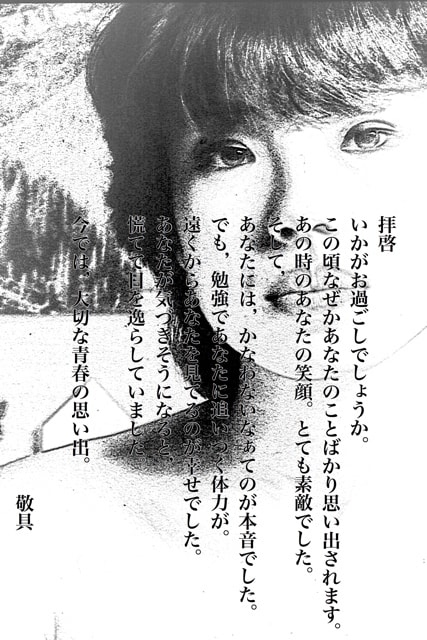 拝啓
いかがお過ごしでしょうか。
この頃なぜかあなたのことばかり思い出されます。
あの時のあなたの笑顔。とても素敵でした。
そして、
あなたには、かなわないなぁてのが本音でした。
でも、勉強であなたに追いつく体力が。
遠くからあなたを見てるのが幸せでした。
あなたが気づきそうになると、
慌てて目を逸らしていました
今では、大切な青春の思い出。
敬具